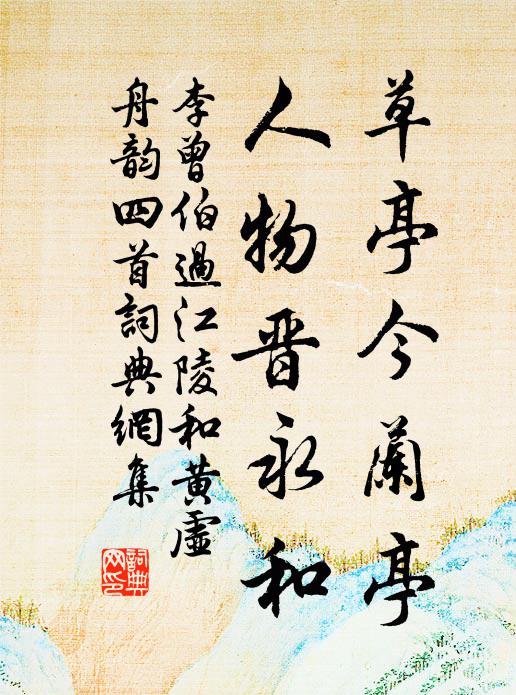 草亭今蘭亭
人物晋永和
李曾伯過江陵和黄虛
舟韵四首詞典網集
詞典